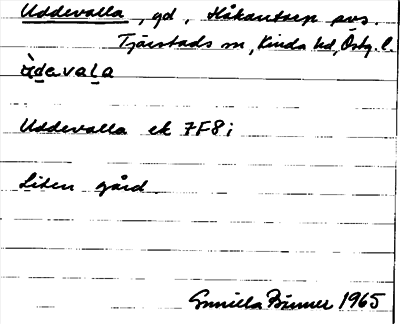 Uddevalla, gd, Håkantorp avs.
Tjärstads sn, Kinda hd, Östg. l.
ùdevala
Uddevalla ek 7F8i
Liten gård
Gunilla Brunner 1965